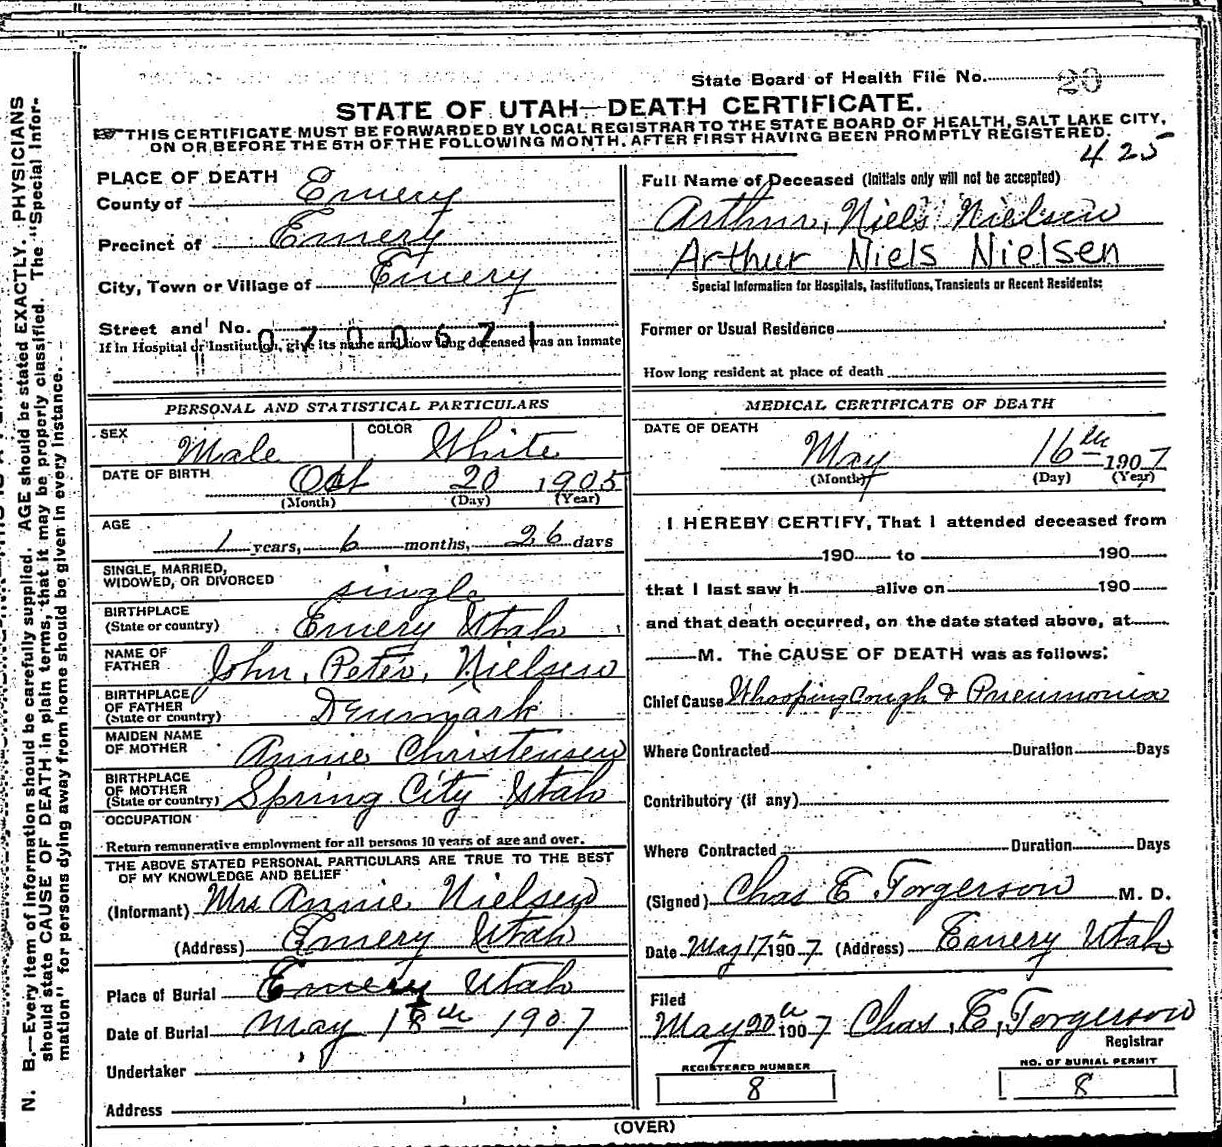 State Board of Health File No. 20
STATE OF UTAH—DEATH CERTIFICATE.
THIS CERTIFICATE MUST BE FORWARDED BY LOCAL REGISTRAR TO THE STATE BOARD OF HEALTH, SALT LAKE CITY,
ON OR BEFORE THE 5TH OF THE FOLLOWING MONTH, AFTER FIRST HAVING BEEN PROMPTLY REGISTERED.
425
PLACE OF DEATH
County of Emery
Precinct of Emery
City, Town or Village of Emery
Street and No.
0700671
If in Hospital or Institution, give its name and how long deceased was an inmate
Full Name of Deceased (Initials only will not be accepted)
Arthur, Niels Nielsen
Arthur Niels Nielsen
Special Information for Hospitals, Institutions, Transients or Recent Residents:
Former or Usual Residence
How long resident at place of death
PERSONAL AND STATISTICAL PARTICULARS
SEX Male COLOR White
DATE OF BIRTH Oct 20 1905
(Month) (Day) (Year)
AGE
1 years, 6 months, 26 days
SINGLE, MARRIED,
WIDOWED, OR DIVORCED single
BIRTHPLACE
(State or country) Emery Utah
NAME OF
FATHER John, Peter, Nielsen
BIRTHPLACE
OF FATHER
(State or country) Denmark
MAIDEN NAME
OF MOTHER Annie Christensen
BIRTHPLACE
OF MOTHER
(State or country) Spring City Utah
OCCUPATION
Return remunerative employment for all persons 10 years of age and over.
THE ABOVE STATED PERSONAL PARTICULARS ARE TRUE TO THE BEST
OF MY KNOWLEDGE AND BELIEF
(Informant) Mrs Annie Nielsen
(Address) Emery Utah
Place of Burial Emery Utah
Date of Burial May 18th 1907
Undertaker
Address
MEDICAL CERTIFICATE OF DEATH
DATE OF DEATH
May 16th 1907
(Month) (Day) (Year)
I HEREBY CERTIFY, That I attended deceased from
190 to 190
that I last saw h alive on 190
and that death occurred, on the date stated above, at
M. The CAUSE OF DEATH was as follows:
Chief Cause Whooping Cough & Pneumonia
Where Contracted Duration Days
Contributory (if any)
Where Contracted Duration Days
(Signed) Chas E Torgerson M. D.
Date May 17th 1907 (Address) Emery Utah
Filed
May 20th 1907 Chas, E, Torgerson
Registrar
REGISTERED NUMBER
8
NO. OF BURIAL PERMIT
8
(OVER)
N. B.—Every item of information should be carefully supplied. AGE should be stated EXACTLY. PHYSICIANS
should state CAUSE OF DEATH in plain terms, that it may be properly classified. The "Special Infor-
mation" for persons dying away from home should be given in every instance.